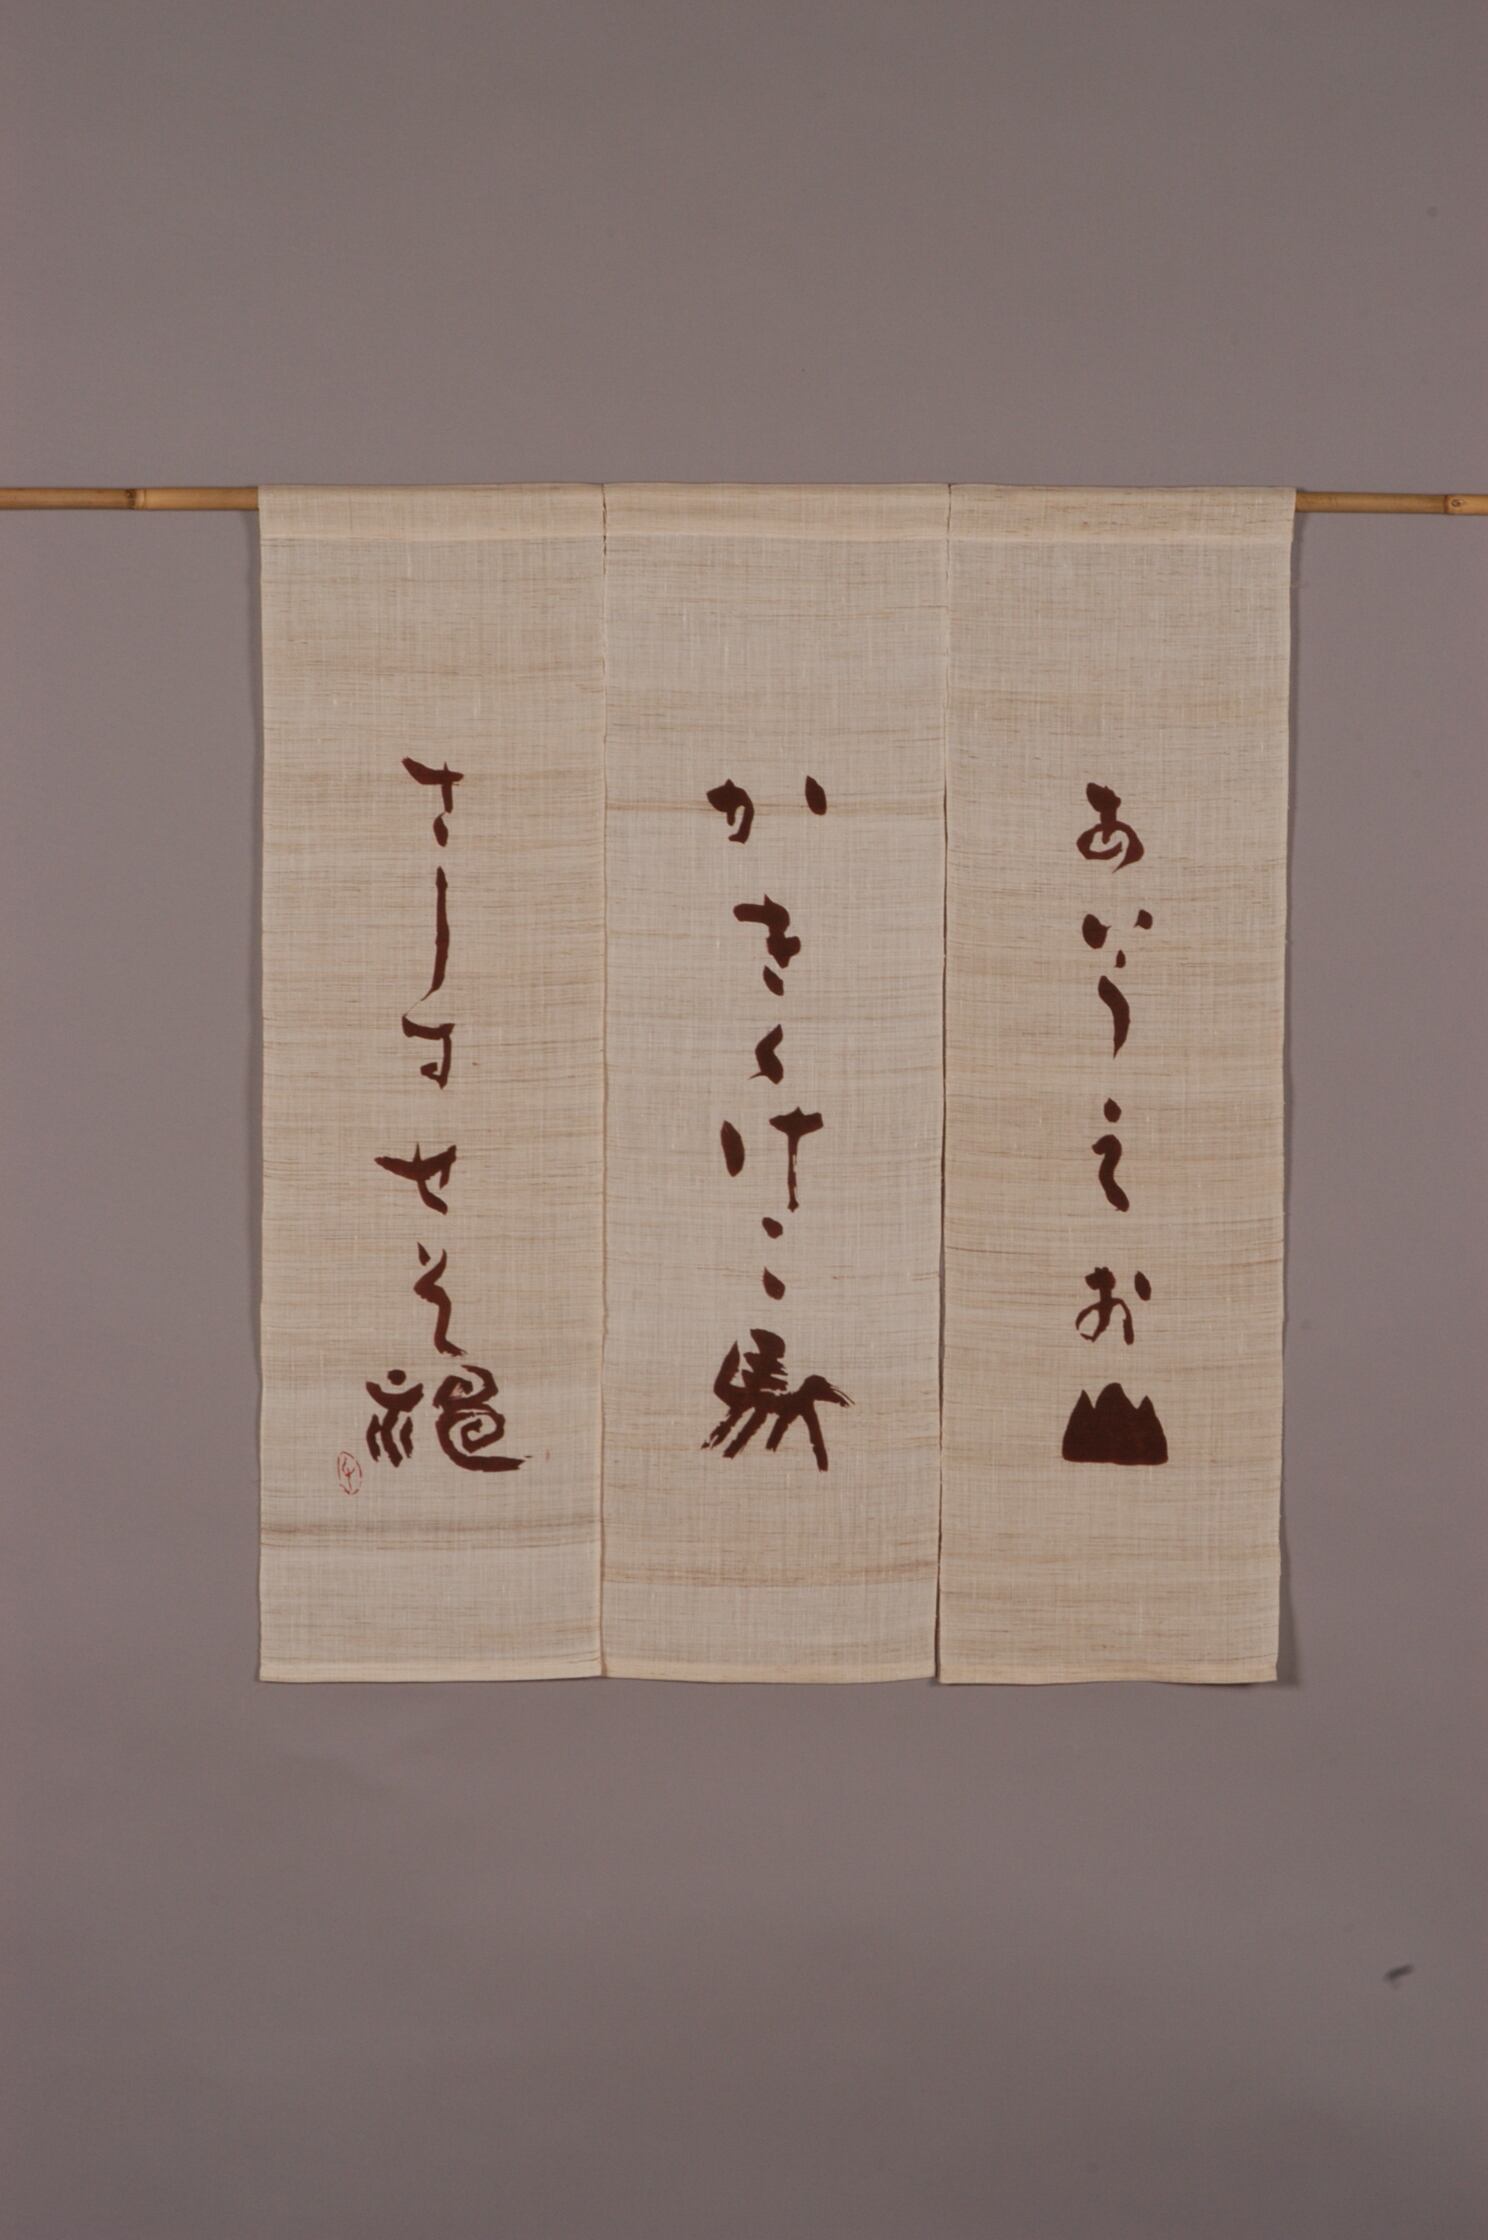 あいうえお山
かきくけこ馬
さしすせそ